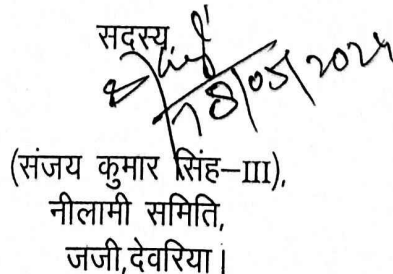 सदस्य
18/05/2024
(संजय कुमार सिंह–III),
नीलामी समिति,
जजी,देवरिया।